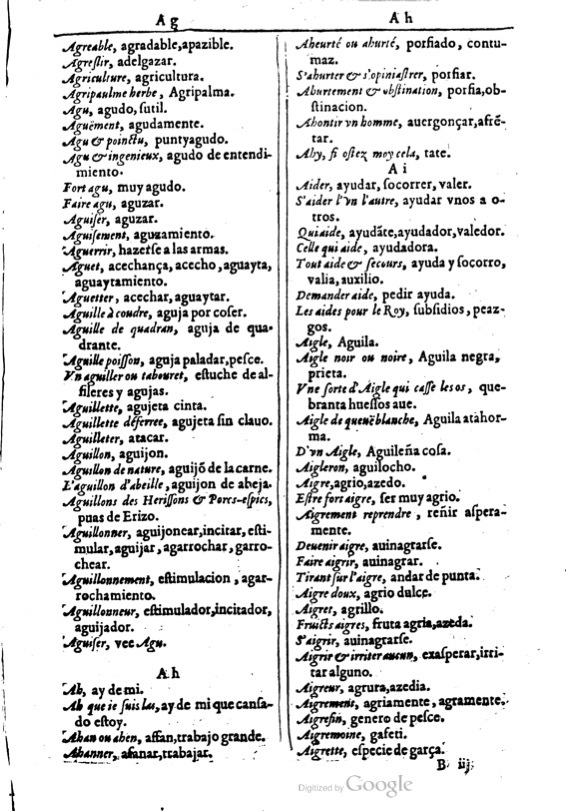 Ag
Agreable, agradable,apazible.
Agreſtir, adelgazar.
Agriculture, agricultura.
Agripaulme herbe, Agripalma.
Agu, agudo, ſutil.
Aguëment, agudamente.
Agu & poinctu, puntyagudo.
Agu & ingenieux, agudo de entendi-
miento.
Fort agu, muy agudo.
Faire agu, aguzar.
Aguiſer, aguzar.
Aguiſement, aguzamiento.
Aguerrir, hazerſe a las armas.
Aguet, acechança, acecho, aguayta,
aguaytamiento.
Aguetter, acechar, aguaytar.
Aguille à coudre, aguja por coſer.
Aguille de quadran, aguja de qua-
drante.
Aguille poiſſon, aguja paladar, peſce.
Vn aguiller ou tabouret, eſtuche de al-
fileres y agujas.
Aguillette, agujeta cinta.
Aguillette déferree, agujeta ſin clauo.
Aguilleter, atacar.
Aguillon, aguijon.
Aguillon de nature, aguijõ de la carne.
L'aguillon d'abeille, aguijon de abeja.
Aguillons des Heriſſons & Porcs-eſpics,
puas de Erizo.
Aguillonner, aguijonear,incitar, eſti-
mular, aguijar, agarrochar, garro-
chear.
Aguillonnement, eſtimulacion, agar-
rochamiento.
Aguillonneur, eſtimulador,incitador,
aguijador.
Aguiſer, vee Agu.
Ah
Ah, ay de mi.
Ah que ie ſuis las, ay de mi que canſa-
do eſtoy.
Ahan ou ahen, affan, trabajo grande.
Ahanner, afanar, trabajar.
Ah
Aheurté ou ahurté, porfiado, contu-
maz.
S'ahurter & s'opiniaſtrer, porfiar.
Ahurtement & obſtination, porfia,ob-
ſtinacion.
Ahontir vn homme, auergonçar,afrẽ-
tar.
Ahy, ſi oſtez moy cela, tate.
Ai
Aider, ayudar, ſocorrer, valer.
S'aider l'vn l'autre, ayudar vnos a o-
tros.
Qui aide, ayudãte,ayudador,valedor.
Celle qui aide, ayudadora.
Tout aide & ſecours, ayuda y ſocorro,
valia, auxilio.
Demander aide, pedir ayuda.
Les aides pour le Roy, ſubſidios, peaz-
gos.
Aigle, Aguila.
Aigle noir ou noire, Aguila negra,
prieta.
Vne ſorte d'Aigle qui caſſe les os, que-
branta hueſſos aue.
Aigle de queuë blanche, Aguila atahor-
ma.
D'vn Aigle, Aguileña coſa.
Aigleron, aguilocho.
Aigre,agrio,azedo.
Eſtre fort aigre, ſer muy agrio.
Aigrement reprendre, reñir aſpera-
mente.
Deuenir aigre, auinagrarſe.
Faire aigrir, auinagrar.
Tirant ſur l'aigre, andar de punta.
Aigre doux, agrio dulce.
Aigret, agrillo.
Fruicts aigres, fruta agria,azeda.
S'aigrir, auinagrarſe.
Aigrir & irriter aucun, exaſperar,irri-
tar alguno.
Aigreur, agrura,azedia.
Aigrement, agriamente, agramente.
Aigrefin, genero de peſce.
Aigremoine, gafeti.
Aigrette, eſpecie de garça.
B iij
Digitized by Google